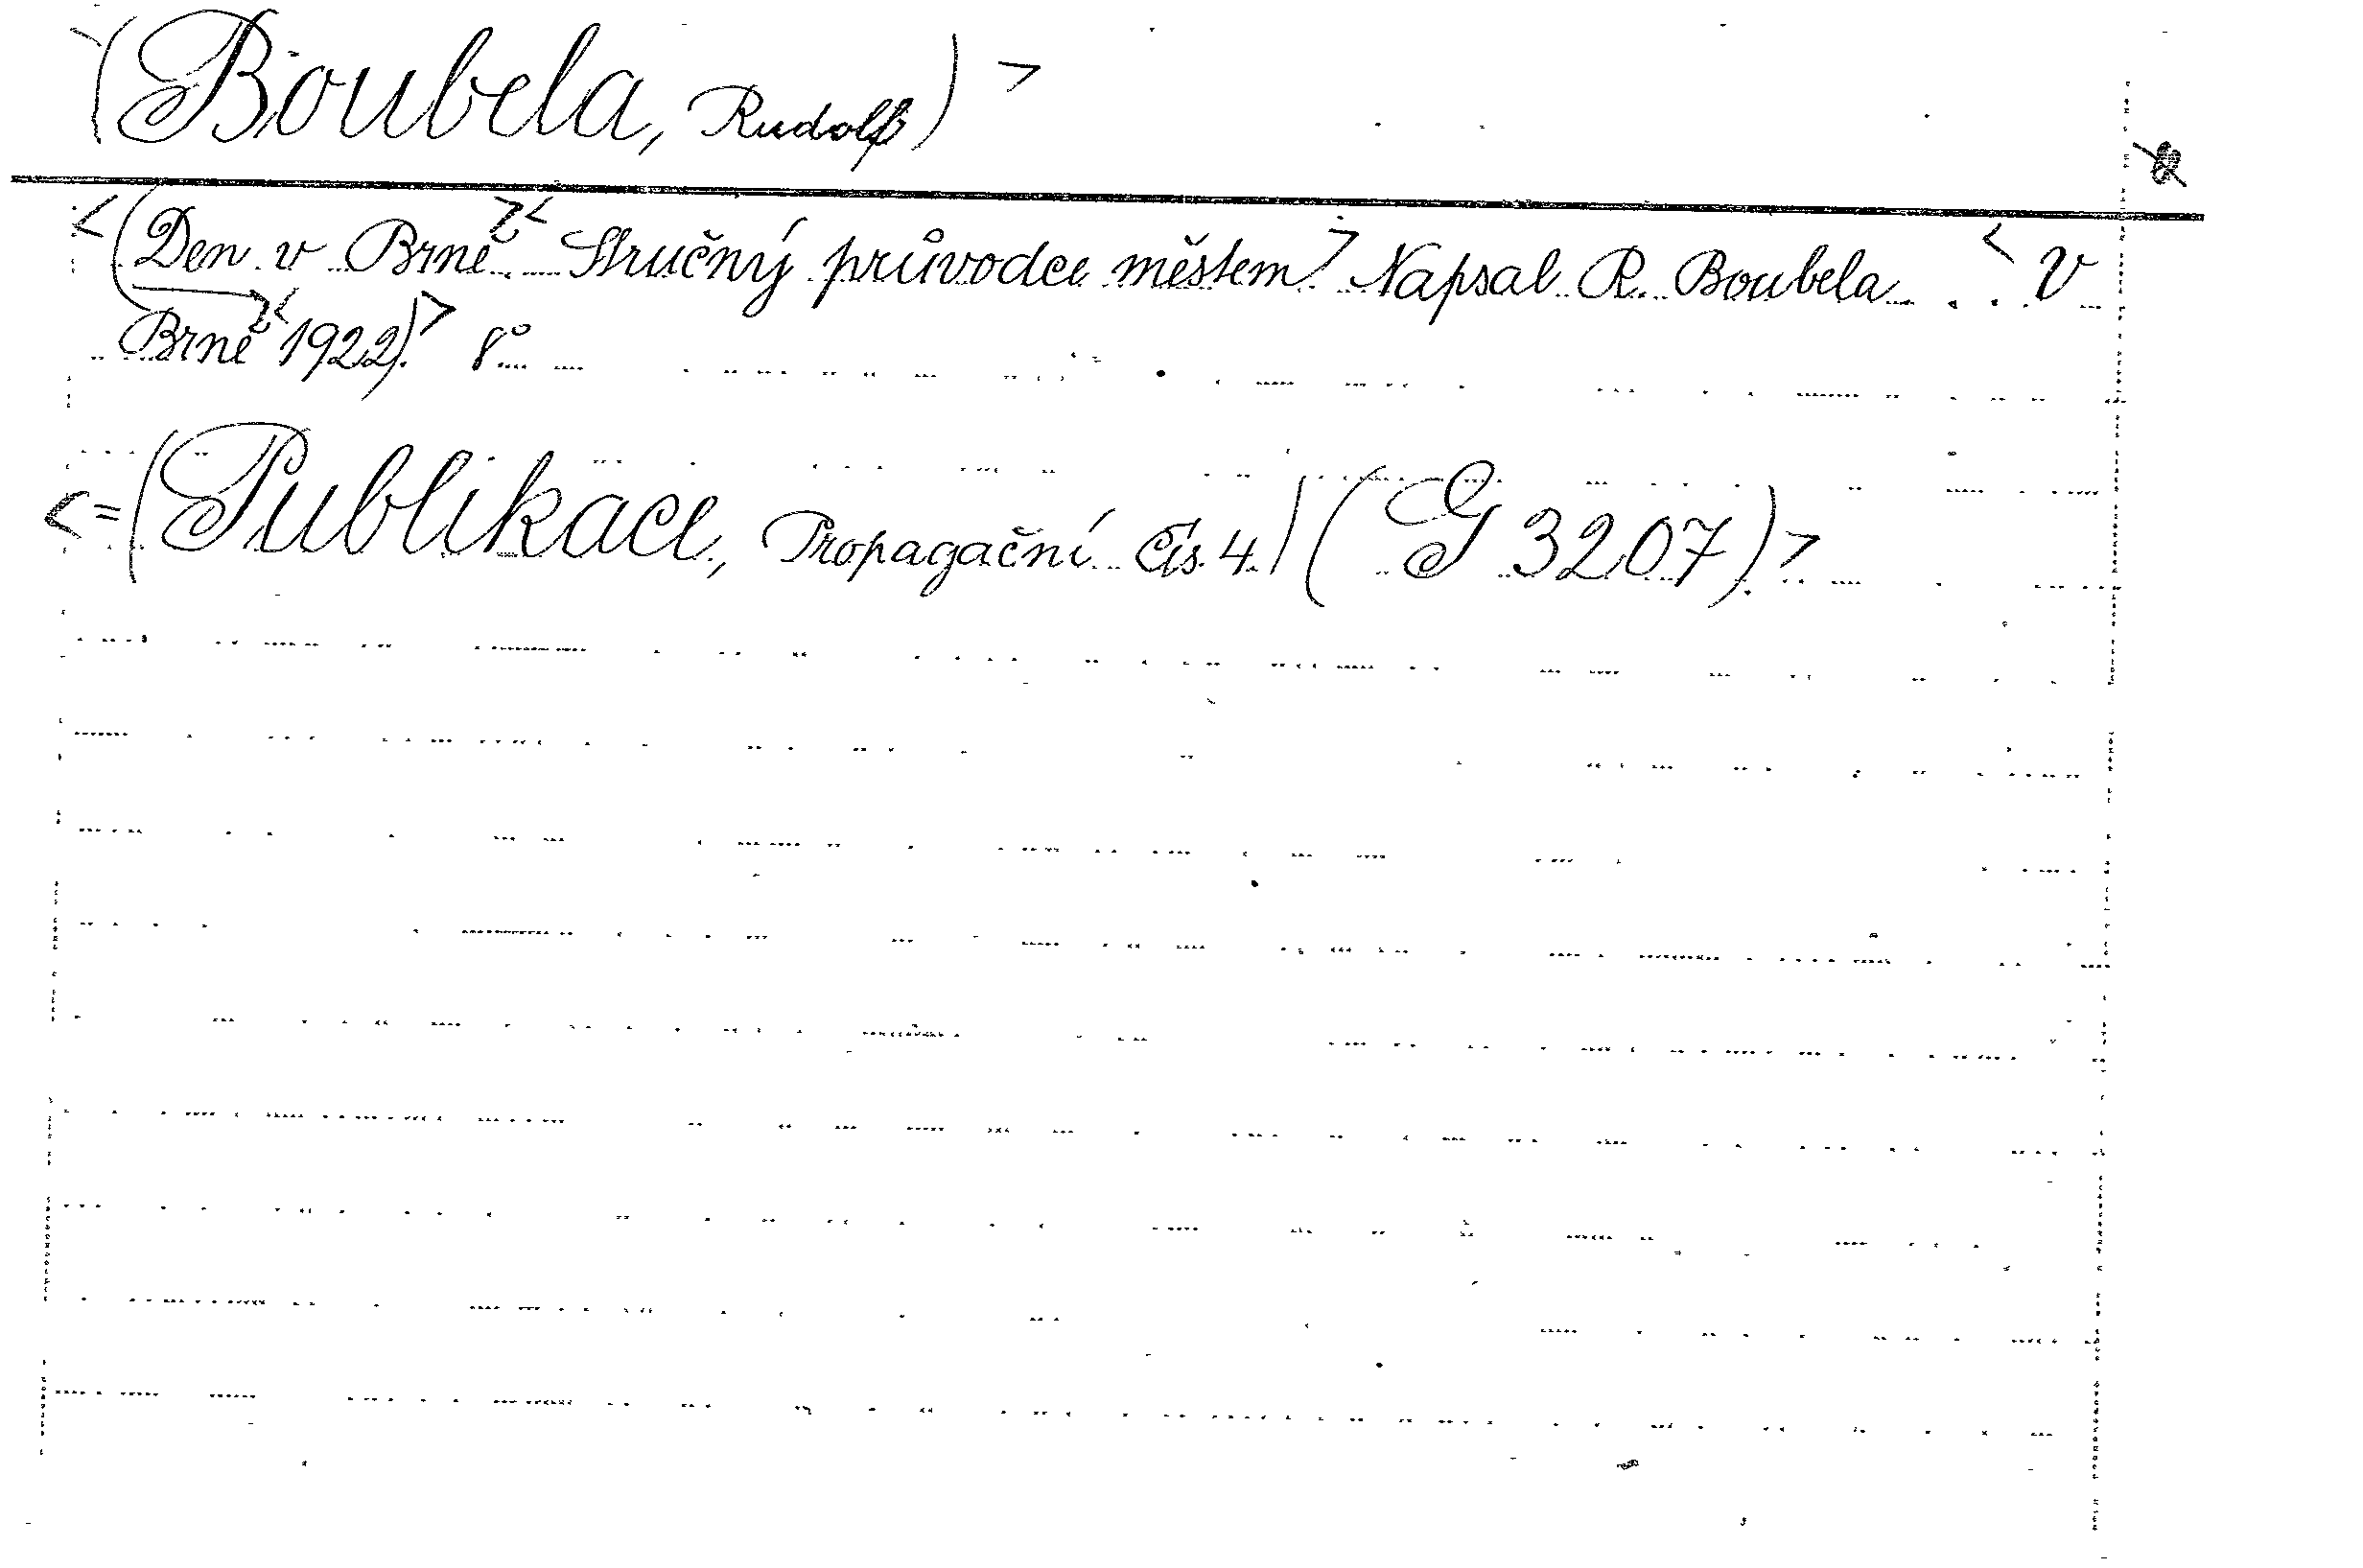 (Boubela, Rudolf) >
< (Den v Brně. >< Stručný průvodce městem > Napsal R. Boubela . . . < V
Brně >< 1922). > 8°
< = (Publikace, Propagační Čís. 4.) (G 3207). >